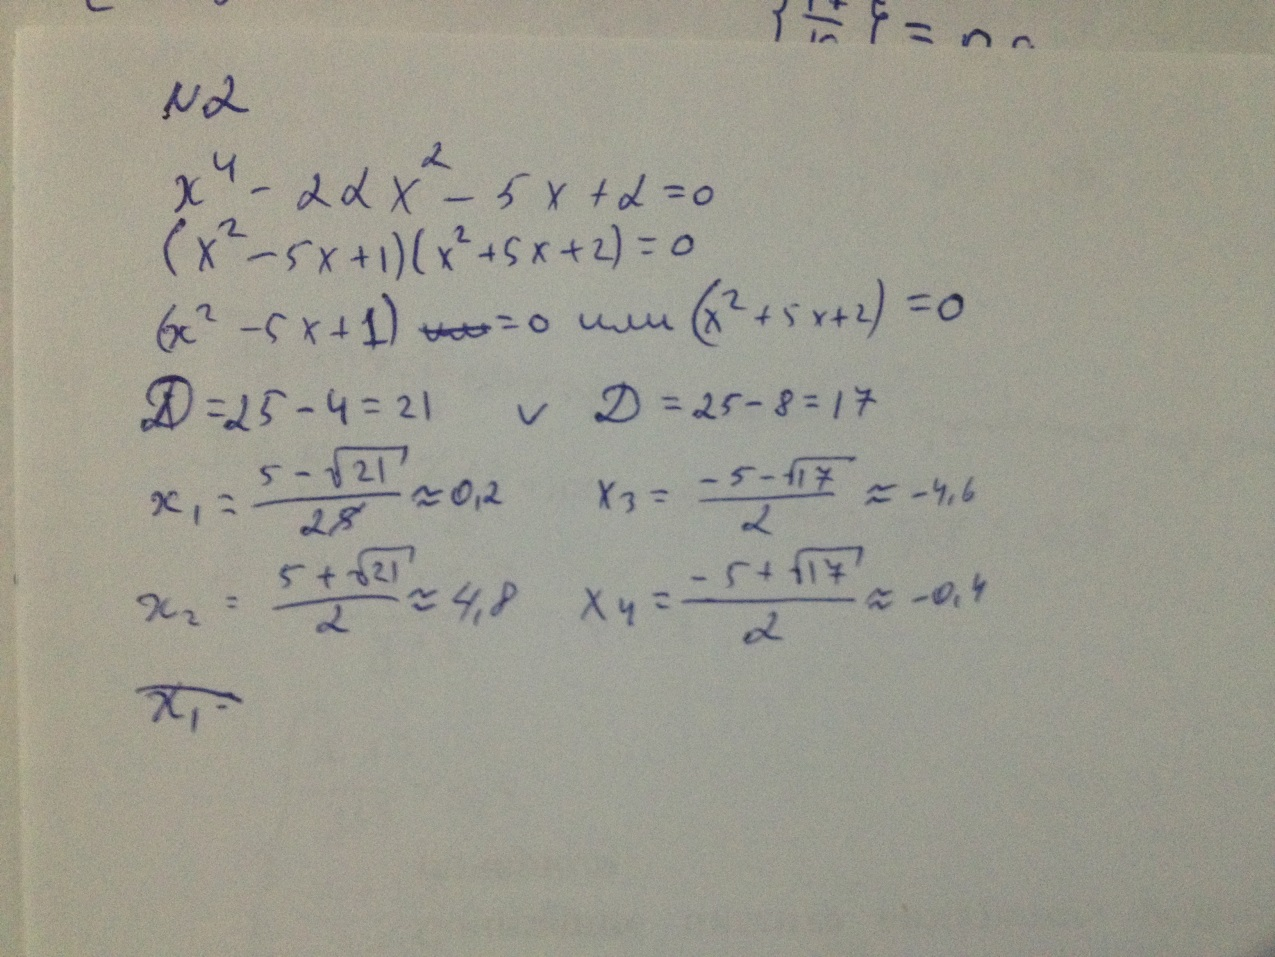 N2
x⁴ - 22x² - 5x + 2 = 0
(x² - 5x + 1)(x² + 5x + 2) = 0
(x² - 5x + 1) = 0 или (x² + 5x + 2) = 0
D = 25 - 4 = 21 v D = 25 - 8 = 17
x₁ = (5 - √21)/2 ≈ 0,2 x₃ = (-5 - √17)/2 ≈ -4,6
x₂ = (5 + √21)/2 ≈ 4,8 x₄ = (-5 + √17)/2 ≈ -0,4
x₁ =